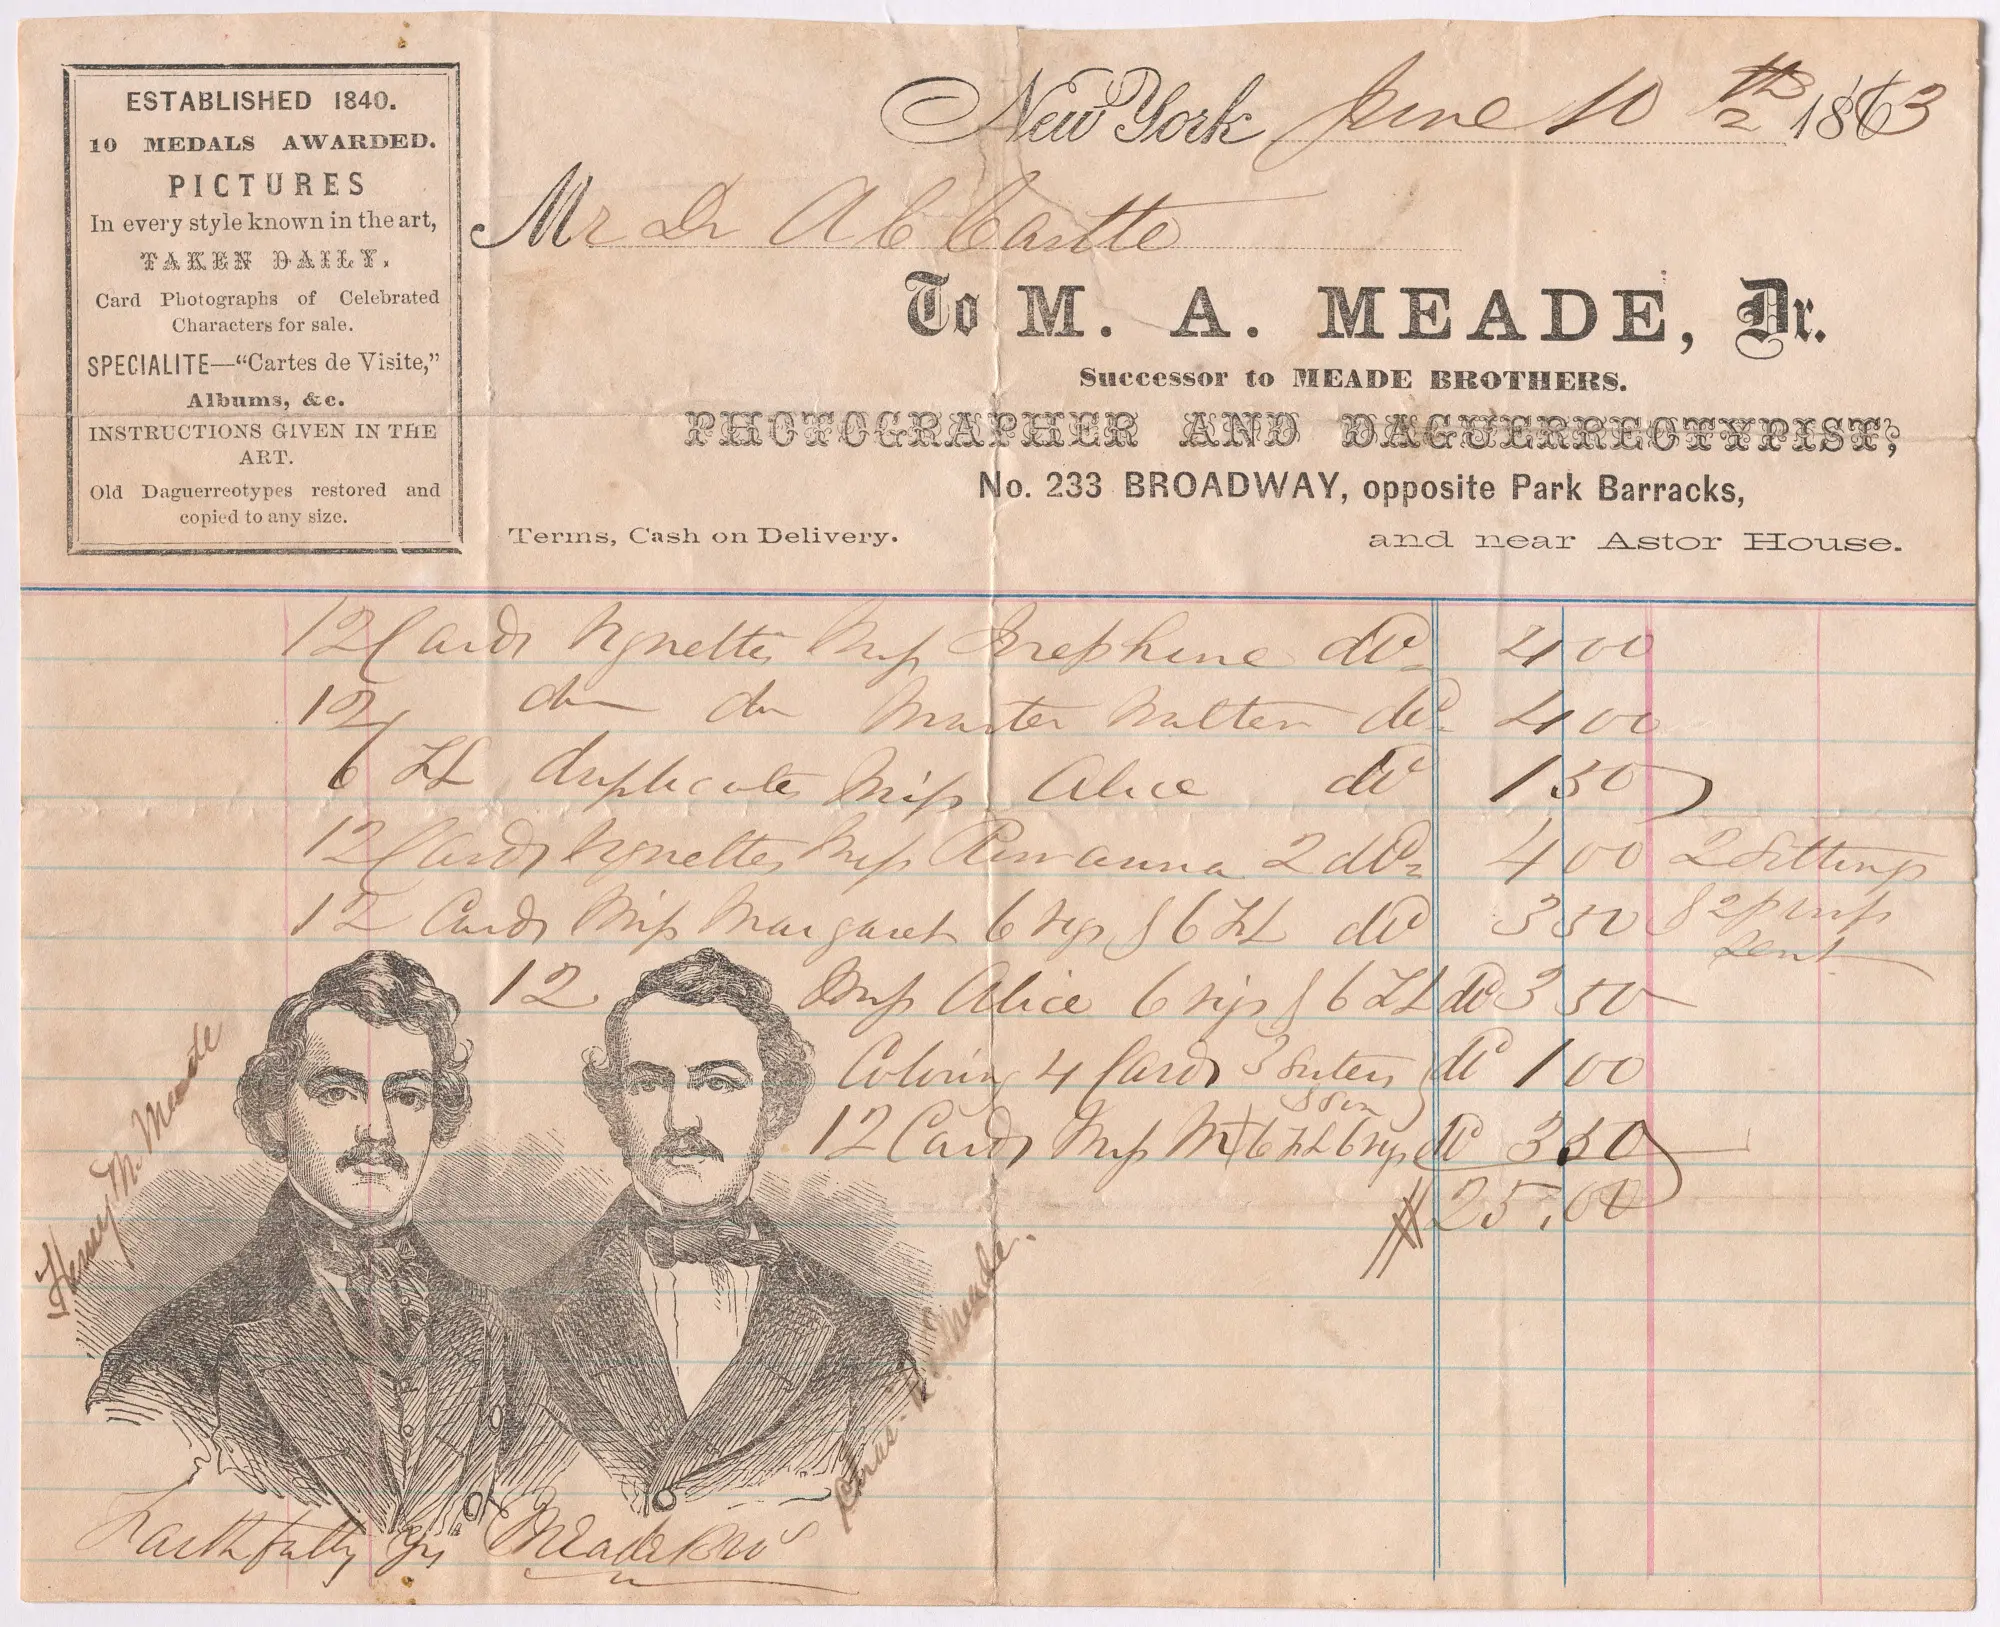 ESTABLISHED 1840.
10 MEDALS AWARDED.
PICTURES
In every style known in the art,
TAKEN DAILY.
Card Photographs of Celebrated
Characters for sale.
SPECIALITE—“Cartes de Visite,”
Albums, &c.
INSTRUCTIONS GIVEN IN THE
ART.
Old Daguerreotypes restored and
copied to any size.
New York June 10 th 1863
Mr Dr A C Castle
To M. A. MEADE, Dr.
Successor to MEADE BROTHERS.
PHOTOGRAPHER AND DAGUERREOTYPIST,
No. 233 BROADWAY, opposite Park Barracks,
Terms, Cash on Delivery.
and near Astor House.
12 Cards Vignettes Miss Josephine 4 00
12 do do Master Walter 4 00
6 duplicates Miss Alice 1 50
12 Cards Vignettes Miss 2 4 00 2 Sittings
12 Cards Miss Margaret 6 vigs & 6 3 50 & 2
sent
12 Miss Alice 6 vigs & 6 3 50
Coloring 4 Cards 3 Sisters 1 00
12 Cards Miss M 6 6 vigs 3 50
$25.00
Henry M. Meade
Chas. R. Meade.
Faithfully Yrs Meade Bros